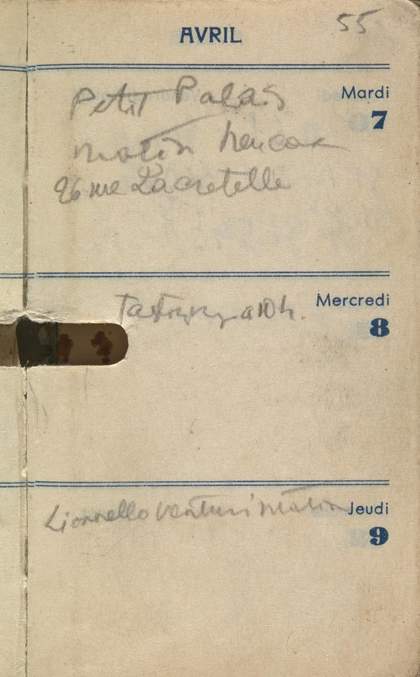 55
AVRIL
Mardi
7
Petit Palais
matin
26 rue Lacretelle
Mercredi
8
a 10 h.
Jeudi
9
Lionnello Venturi matin